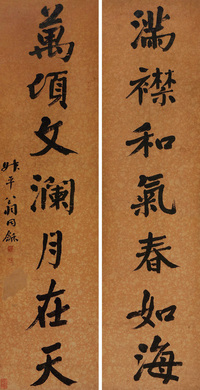 滿襟和氣春如海
萬頃文瀾月在天
叔平翁同龢